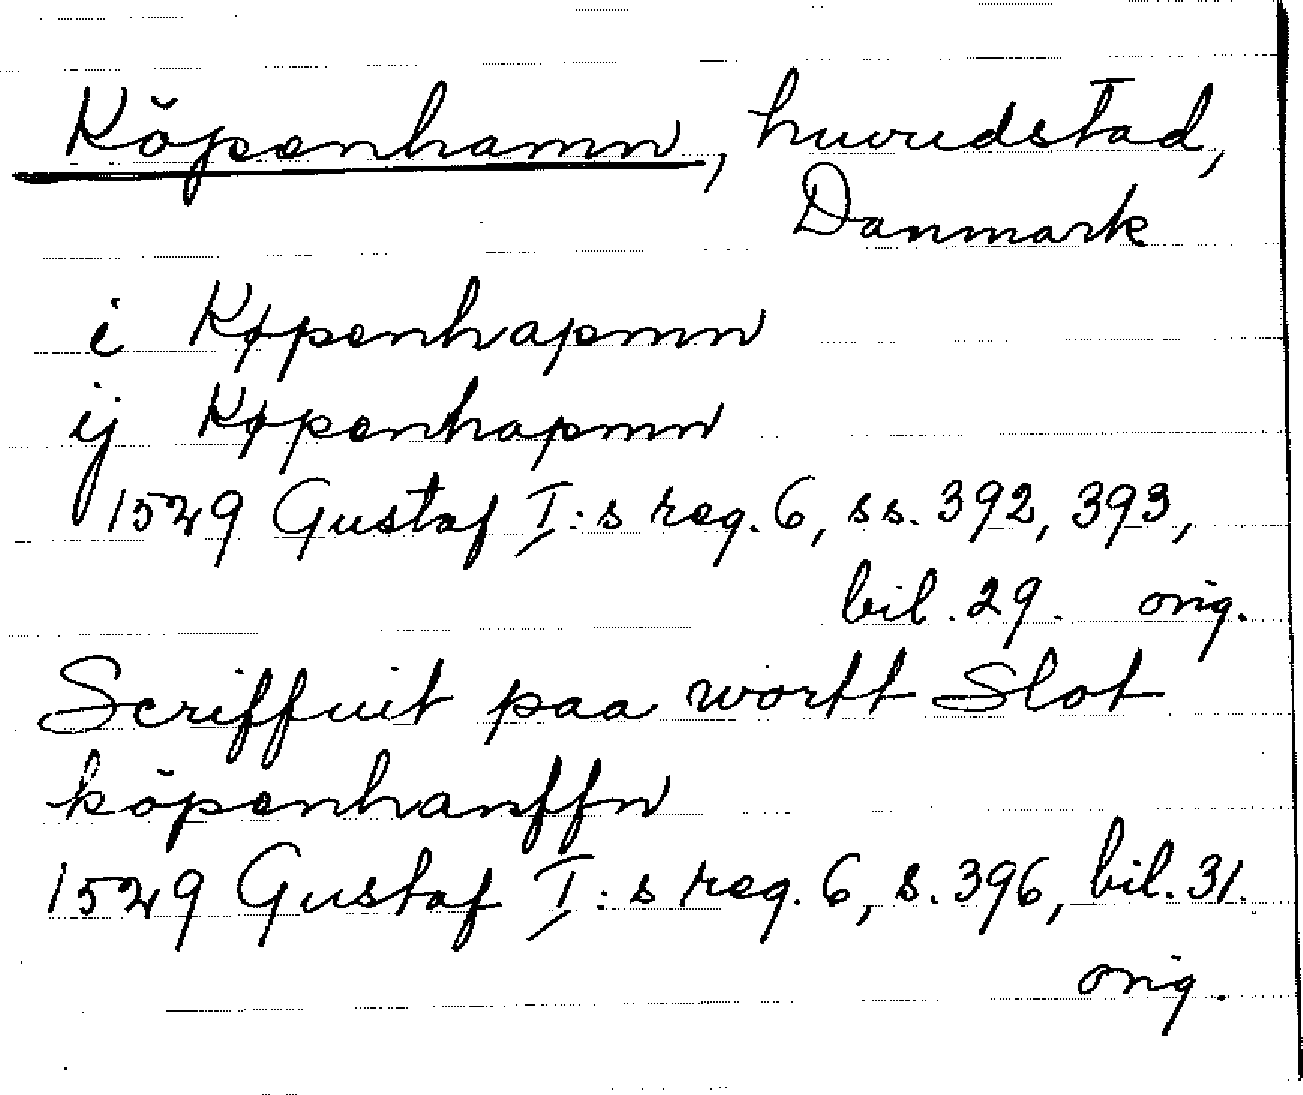 Köpenhamn, huvudstad,
Danmark
i Køpenhapmn
ij Køpenhapmn
1529 Gustaf I:s reg. 6, ss. 392, 393,
bil. 29. orig.
Scriffuit paa wortt Slot
köpenhanffn
1529 Gustaf I:s reg. 6, s. 396, bil. 31.
orig.